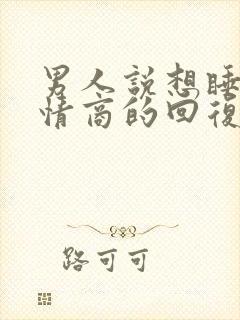 男人說想睡
情商的回復
路可可